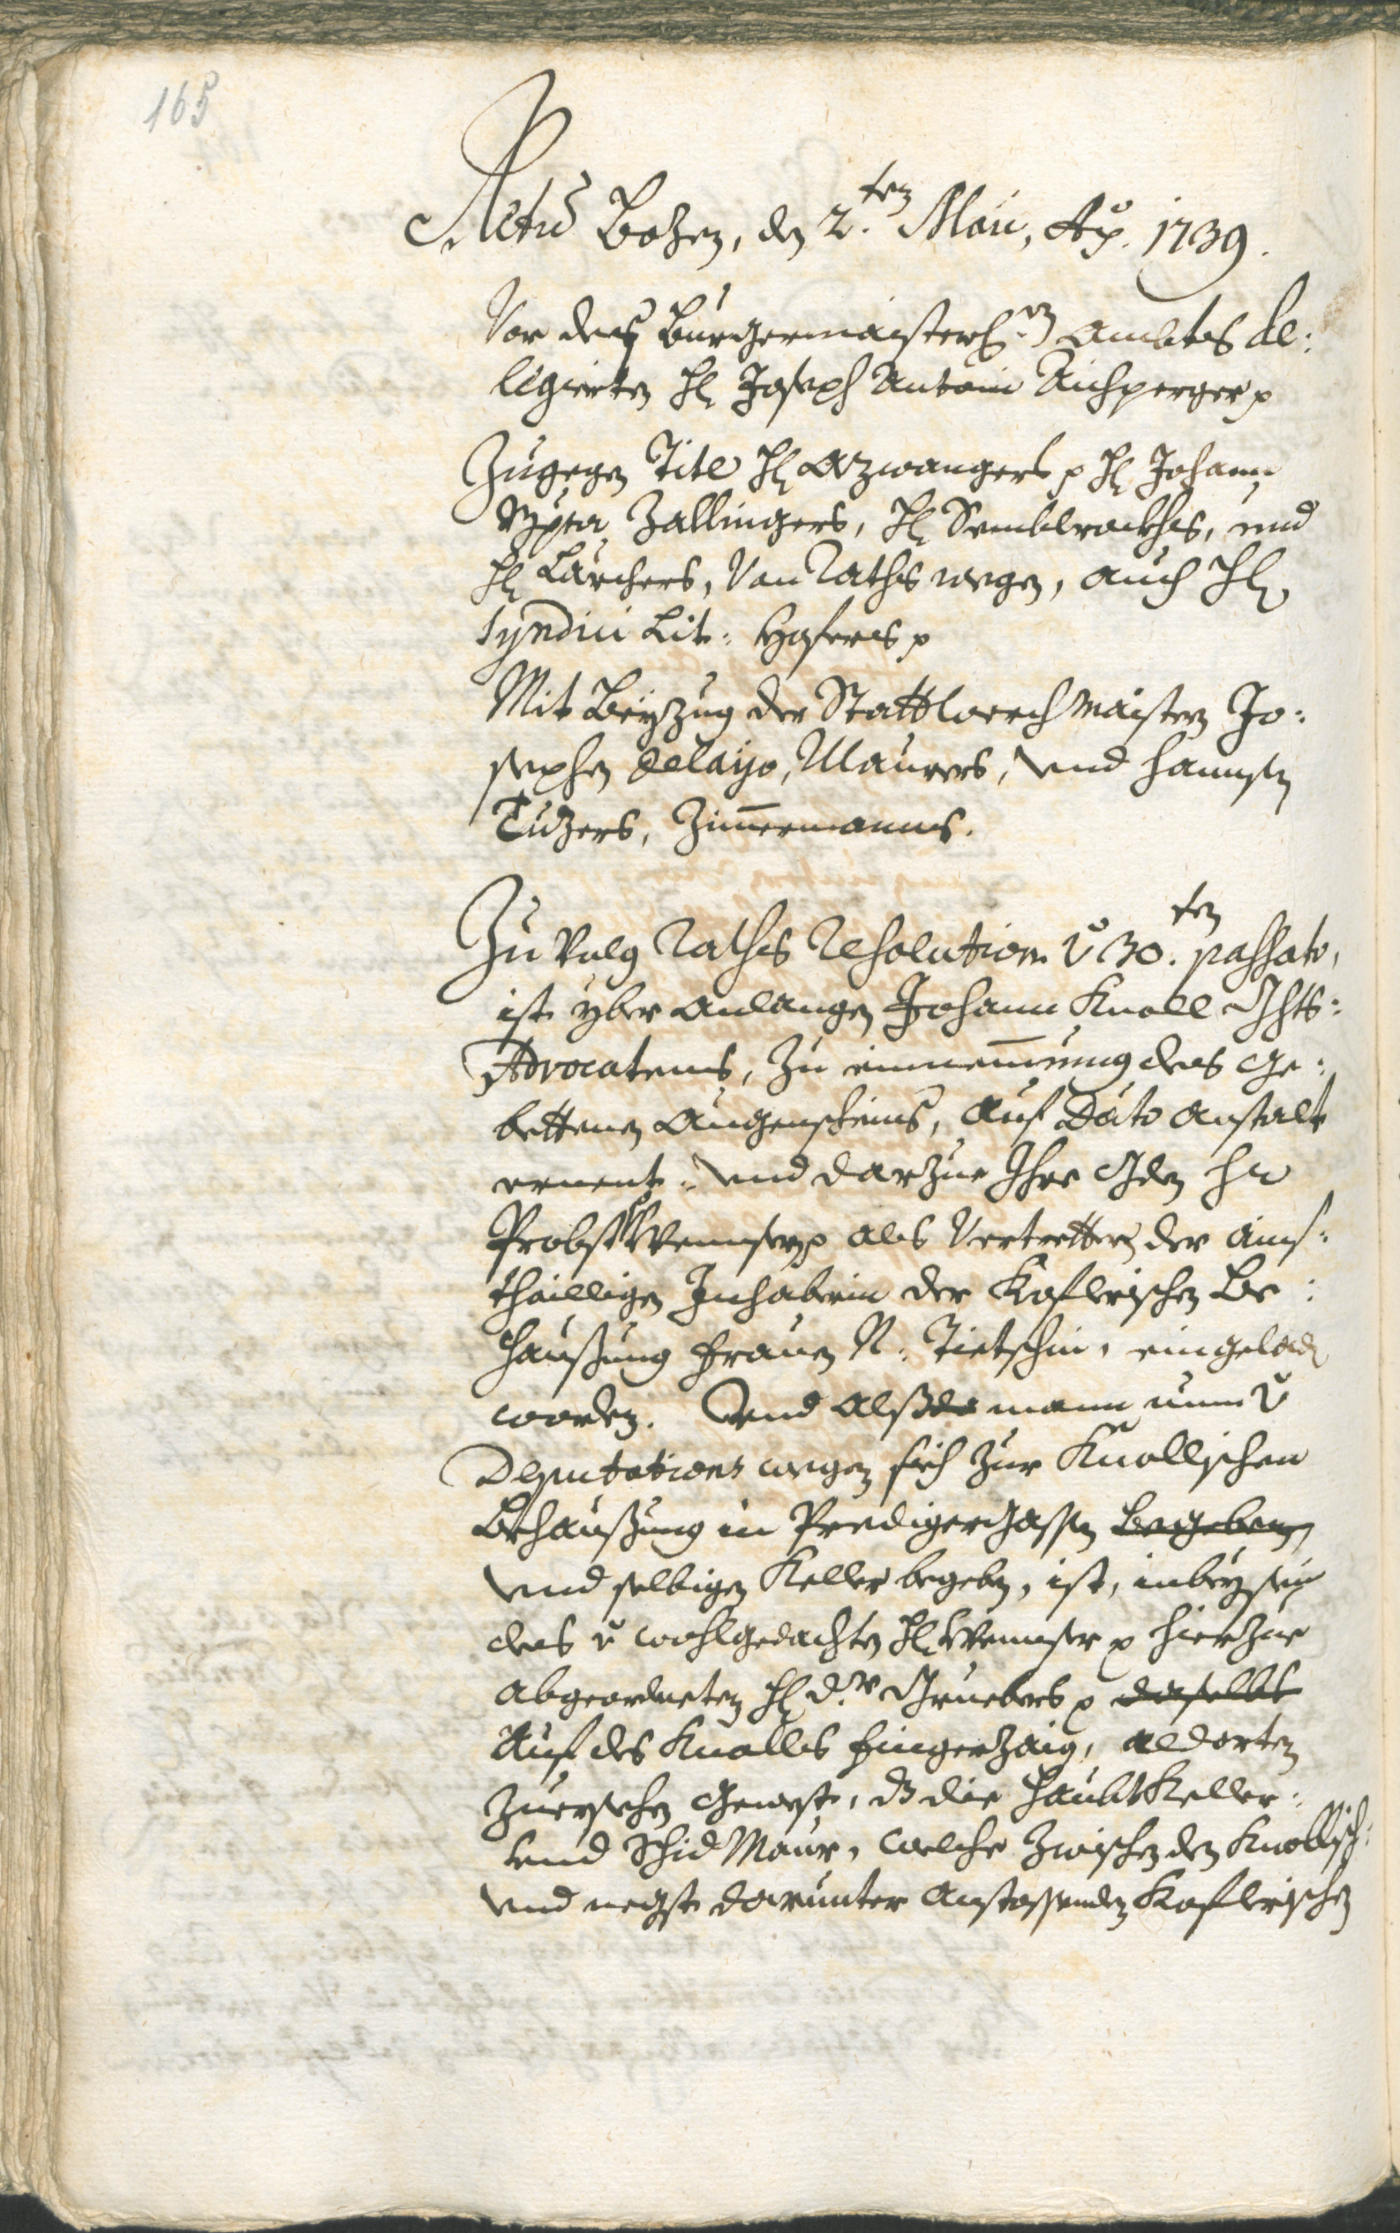 165
Actũ Bozen, den 2.ten Maii, Aõ. 1739.
Vor dens Burgermaisterl:en Ambtes de:
legierten H: Joseph Antoni Aichperger p
Zugegen Titl H: Azwangers p H: Johann
Zallingers, H: Semblrockhs, und
H: Larchers, Von Raths wegen, auch H:
Syndici Lit: Hofers p
Mit Beyzug der Stattwerch Maistern Jo:
sephen Delaijo, Maurers, und Hannsen
Tuzers, Zimmermanns.
Zu Volg Raths Resolution v 30.ten passato,
ist yber anlangen Johann Knoll Ghts:
Advocatens, zu einnemmung des ge:
bettenen Augenscheins, auf Dato Anstalt
ernent: und darzue Ihro Gden Hr
Probst Wenser p als Vertrettern der ains:
thailligen Inhaberin der Koflerischen Be:
haußung Frauen N: Tietschin, eingeladen
worden. Und alß mann nun v
Deputations wegen sich zur Knollischen
Behaußung in Predigergassen begeben
und selbigen Keller begeben, ist, in beysein
des v wohlgedachten H: Wenser p hierzue
abgeordneten H: D.r Gruebers p daselbst
Auf des Knolls fingerzaig, aldorten
zuersehen gewest, dz die Haubt Keller:
und Schid Maur, welche zwischen den Knollisch:
und negst darunter anstossenden Koflerischen